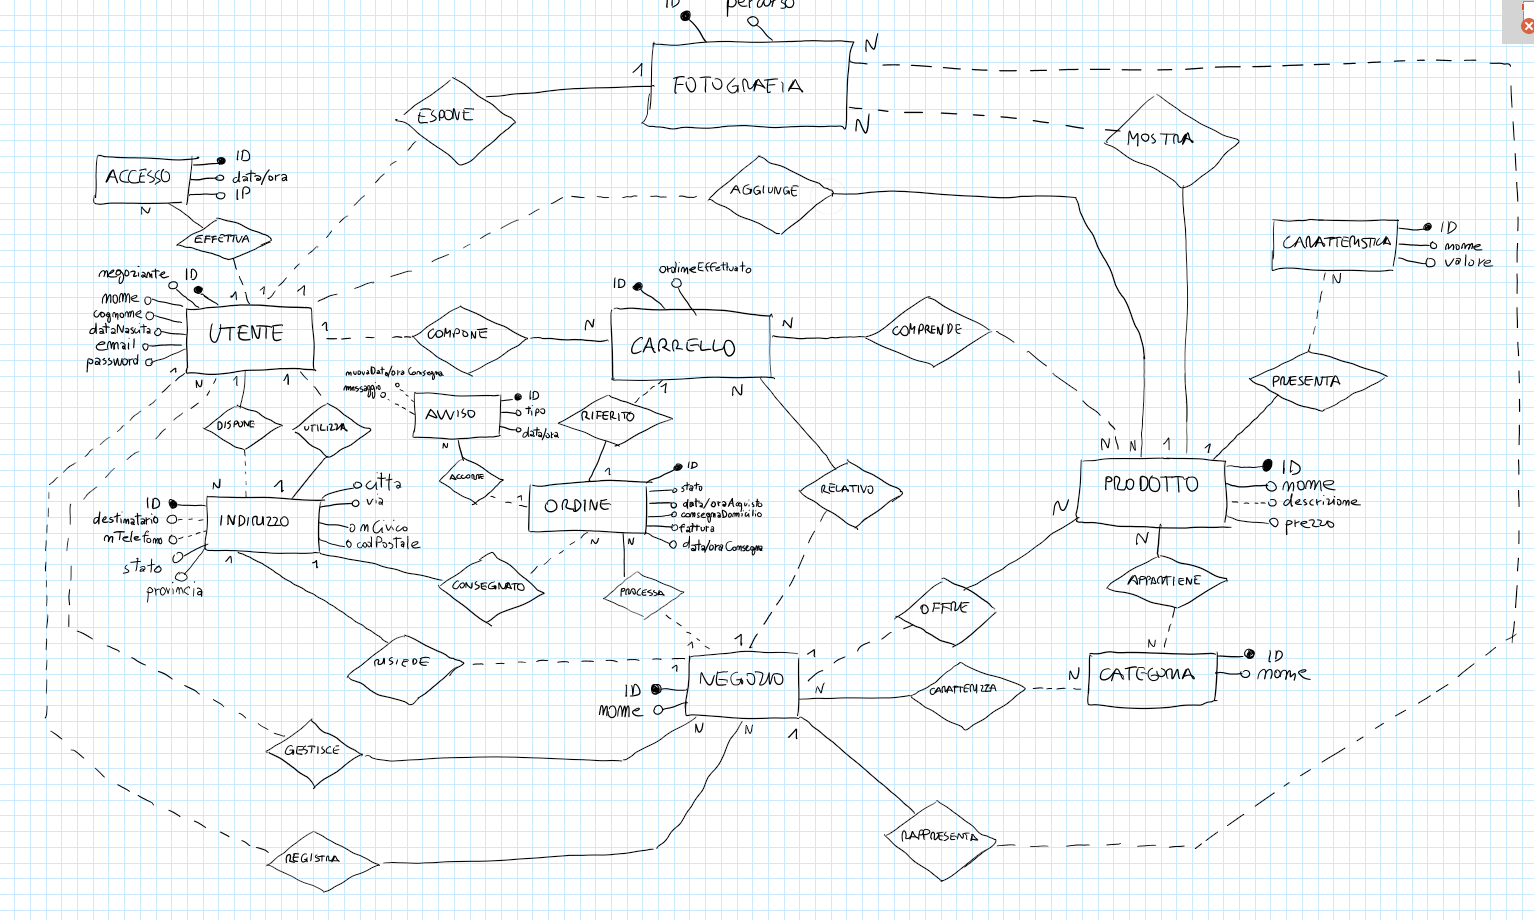 ID percorso
N
1
FOTOGRAFIA
N
ESPONE
MOSTRA
ACCESSO
ID
data/ora
IP
N
EFFETTUA
AGGIUNGE
CARATTERISTICA
ID
nome
valore
N
negoziante ID
nome
cognome
dataNascita
email
password
1 1 1
UTENTE
1
1 N 1 1
COMPONE
ID ordineEffettuato
N
CARRELLO
N
1 N
COMPRENDE
PRESENTA
nuovaData/ora Consegna
messaggio
AVVISO
ID
tipo
data/ora
N
RIFERITO
DISPONE
UTILIZZA
N 1
ACCORRE
1
1
ORDINE
ID
stato
data/oraAcquisto
consegnaDomicilio
fattura
data/oraConsegna
N N
RELATIVO
N N 1 1
PRODOTTO
N
ID
nome
descrizione
prezzo
N
ID
destinatario
nTelefono
stato
provincia
INDIRIZZO
città
via
nCivico
codPostale
1 1
CONSEGNATO
PROCESSA
OFFRE
APPARTIENE
N
RISIEDE
1 1 1
1
ID
nome
NEGOZIO
N
CARATTERIZZA
N
CATEGORIA
ID
nome
N N 1
GESTISCE
REGISTRA
RAPPRESENTA